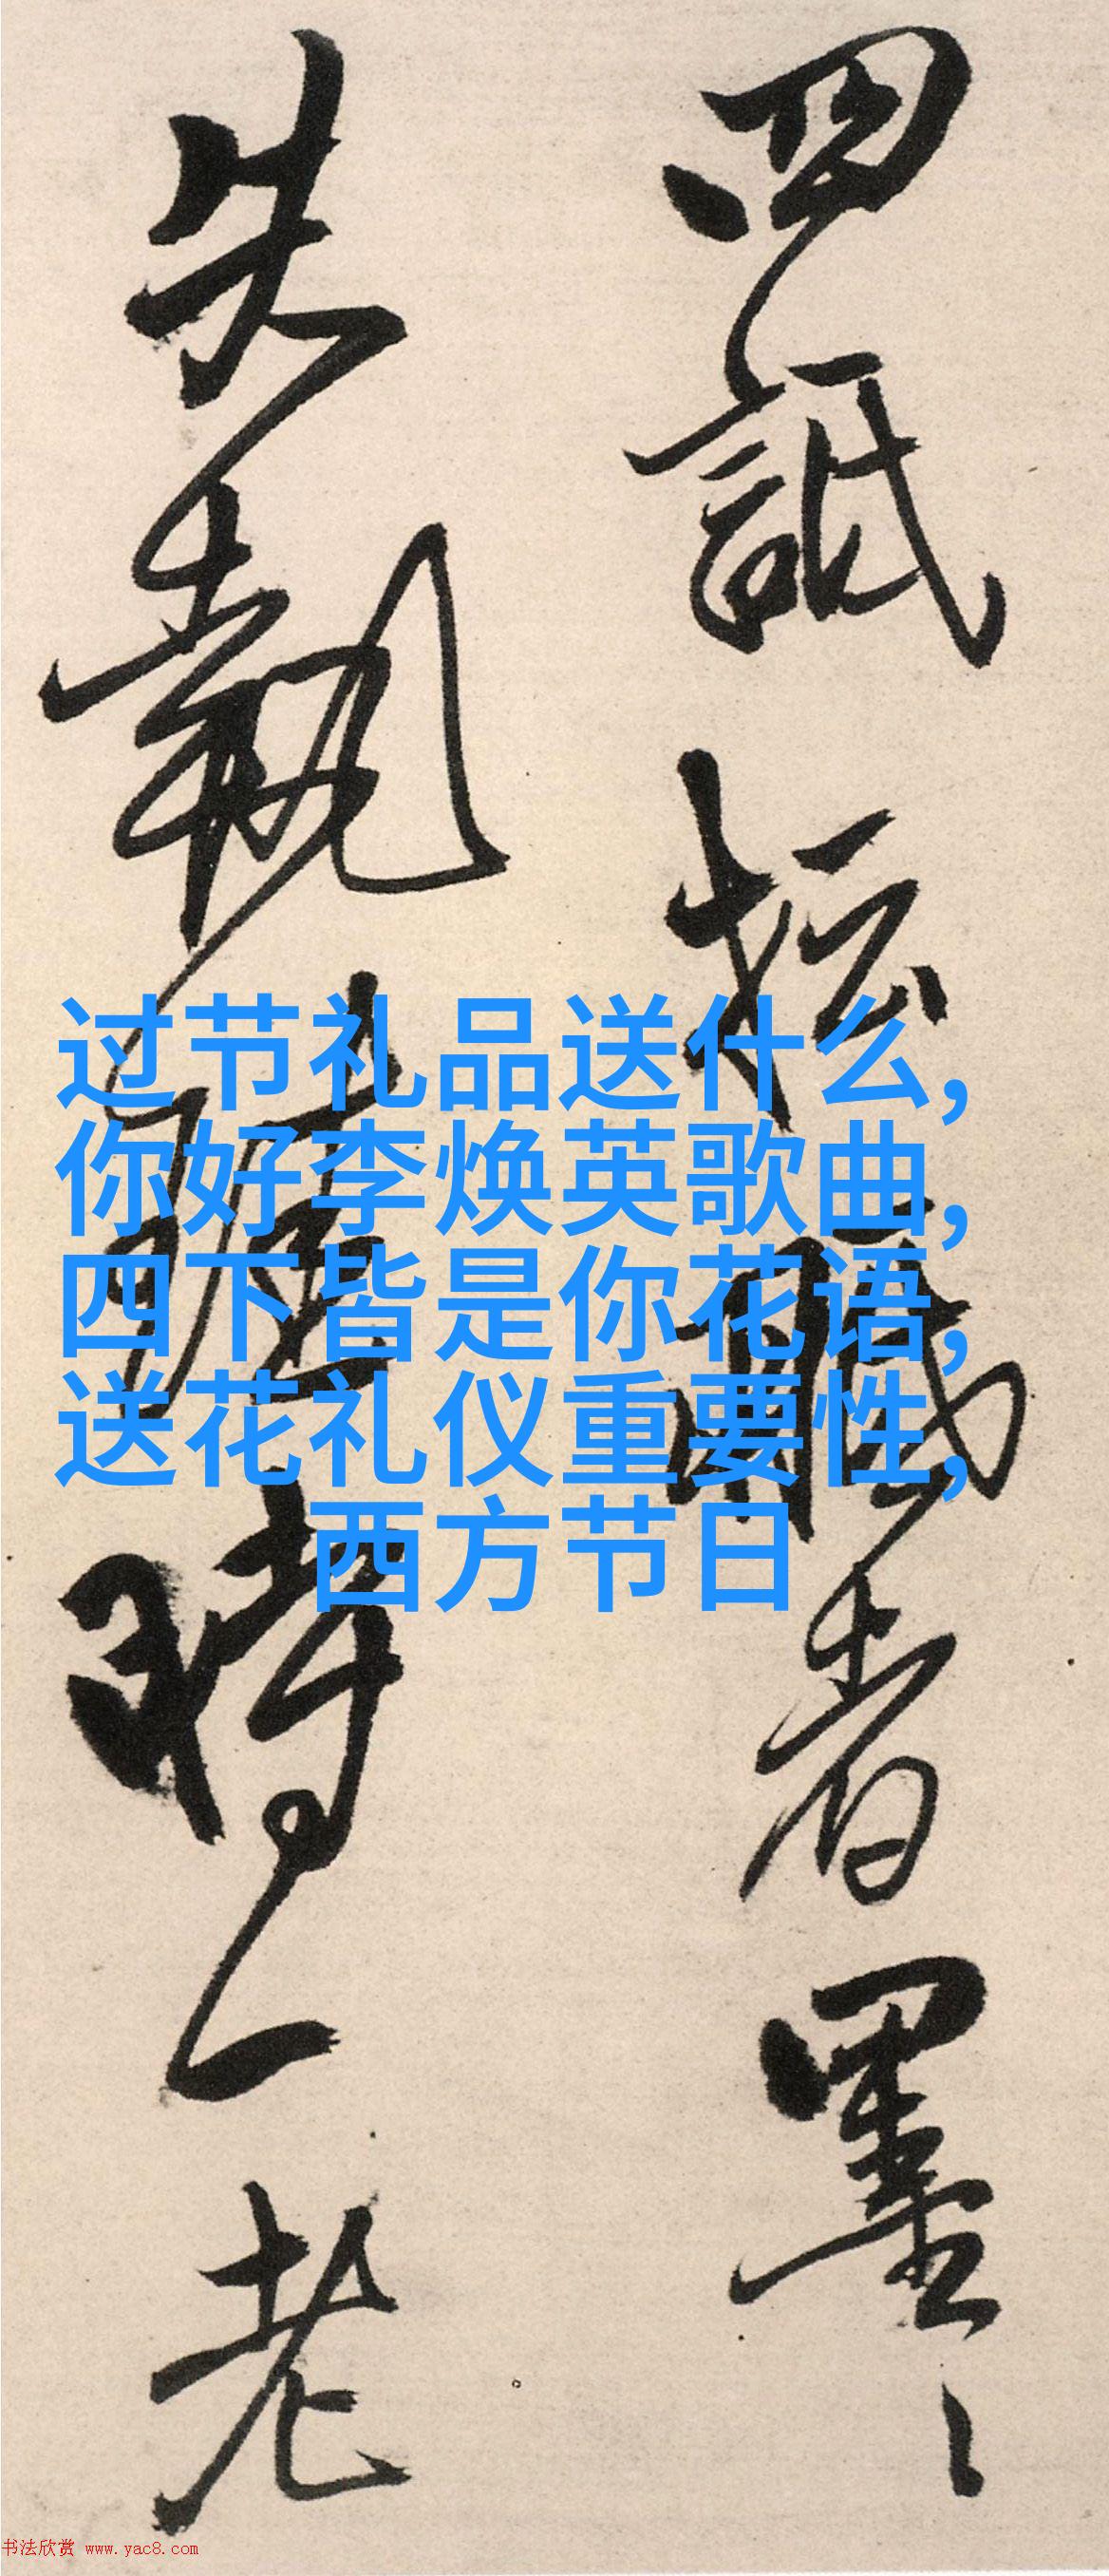 四詆於職者墨〻
失執踞時一老
过节礼品送什么,
你好李焕英歌曲,
四下皆是你花语,
送花礼仪重要性,
西方节日
书法欣赏 www.yac8.com